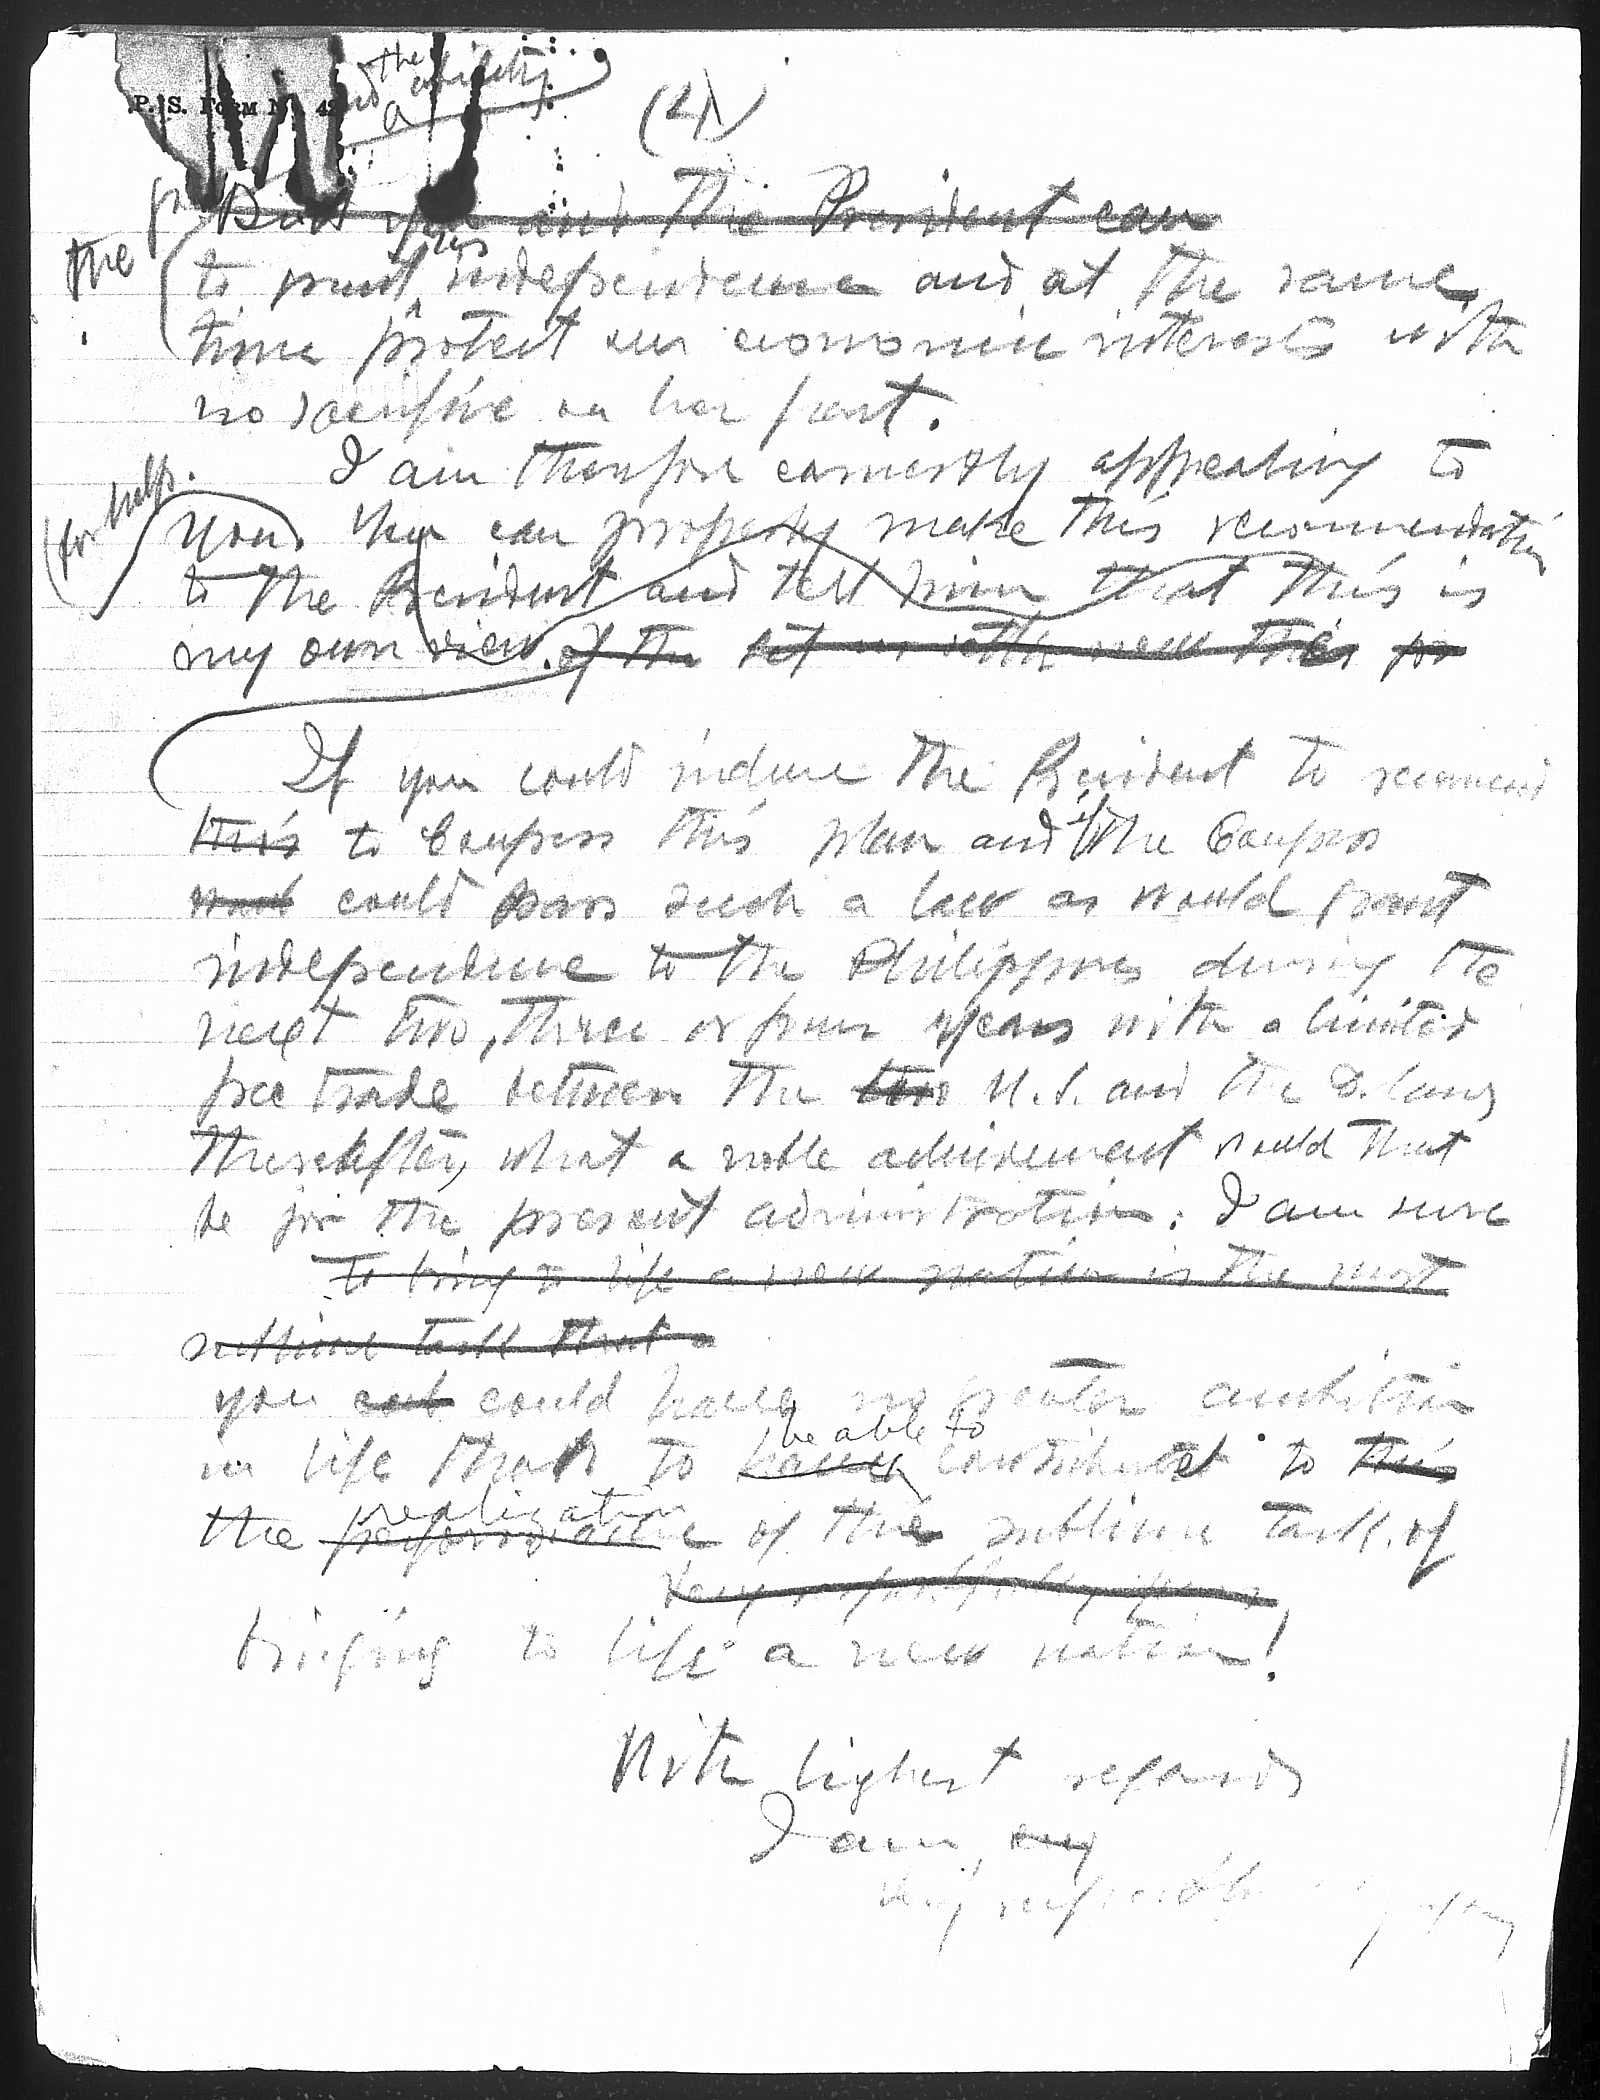 P. S. FORM No. 49
the
ability
(2)
But you and the President can
the
to grant us independence and at the same
time protect our economic interests with
no sacrifice on her part.
I am therefore earnestly appealing to
(for help.
you. You can properly make this recommendation
to the President and tell him that this is
my own view. of the
If you could induce the President to recommend
this to Congress this plan and if the Congress
could pass such a law as would grant
independence to the Philippines during the
next two, three or four years with a limited
free trade between the two U.S. and the Islands
thereafter, what a noble achievement would that
be for the present administration. I am sure
to bring to life a new nation is the most
sublime task that a
you could have no greater ambition
be able to
in life than to have contributed to this
realization
the performance of the sublime task of
Very respectfully yours
bringing to life a new nation!
With highest regards
I am, my
Very respectfully